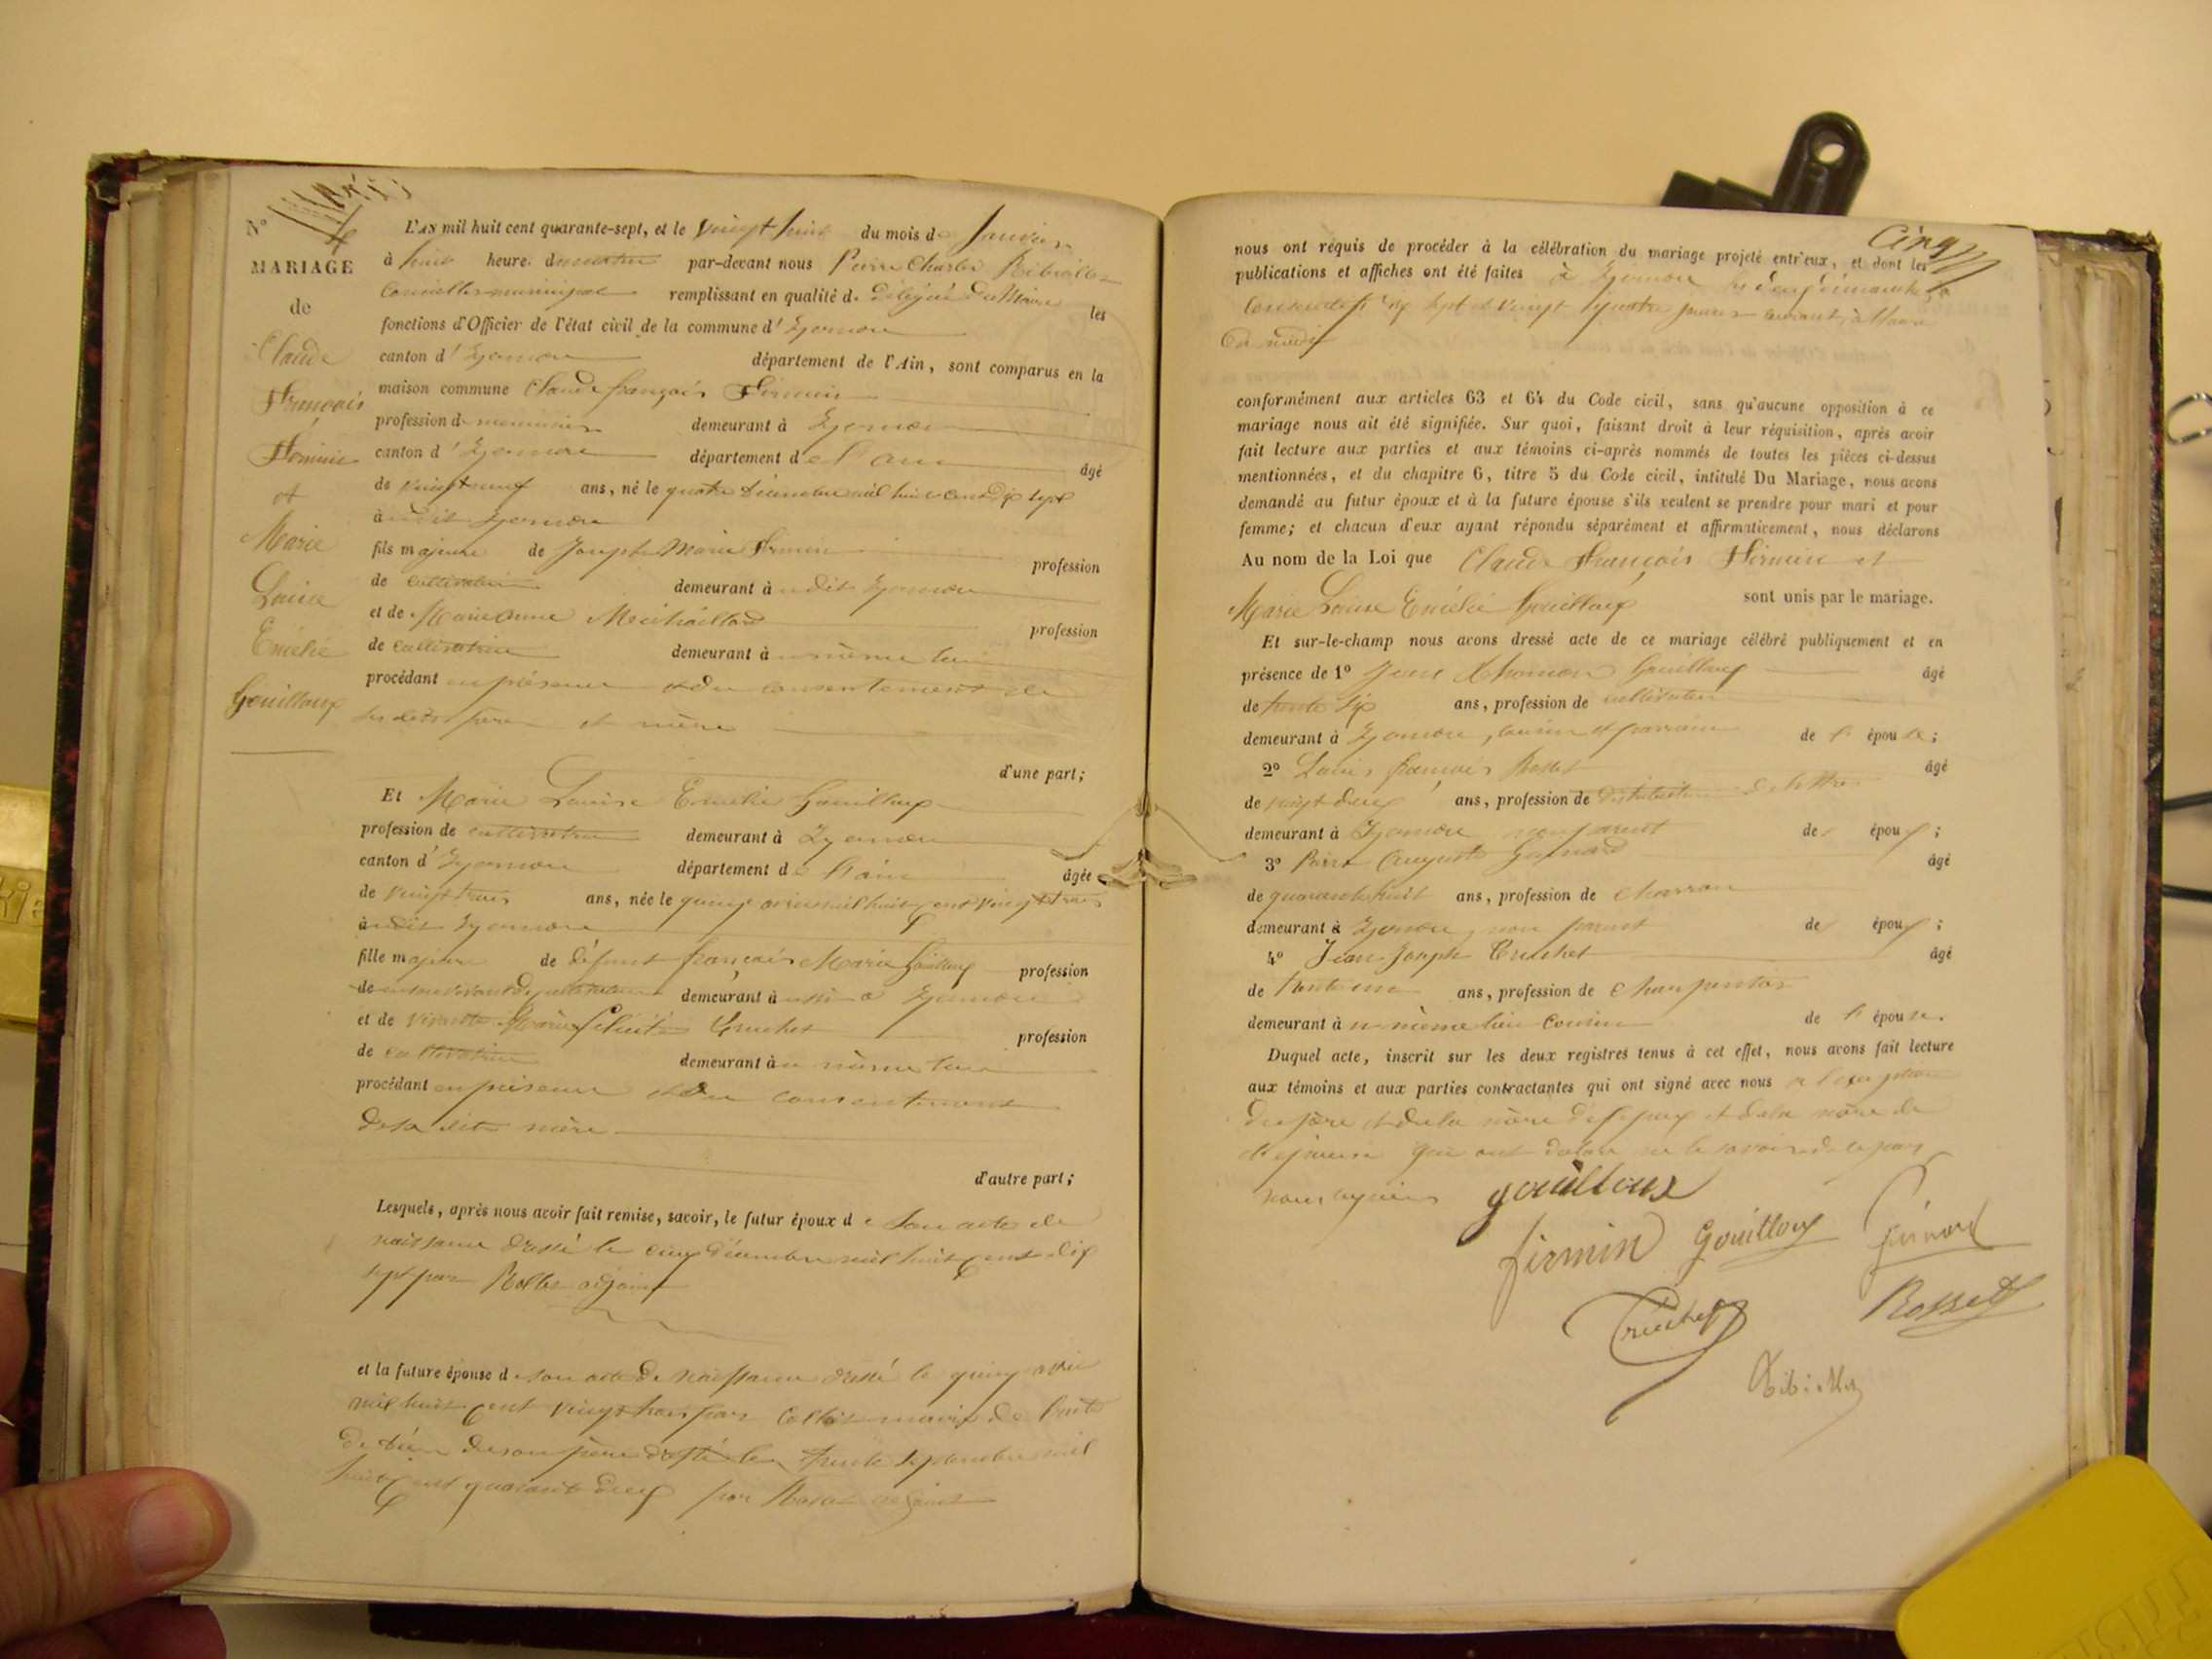 N° 4
MARIAGE
de
Claude
François
Firmin
et
Marie
Louise
Emélie
Gouilloux
L'AN mil huit cent quarante-sept, et le vingt huit du mois de Janvier
à huit heure du matin par-devant nous Pierre Charles
Conseiller municipal remplissant en qualité de délégué du Maire les
fonctions d'Officier de l'état civil de la commune d'Izernore
canton d'Izernore département de l'Ain, sont comparus en la
maison commune Claude françois Firmin
profession de menuisier demeurant à Izernore
canton d'Izernore département de l'ain âgé
de vingt neuf ans, né le quatre décembre mil huit cent dix sept
à udit Izernore
fils majeur de Joseph Marie Firmin profession
de cultivateur demeurant à udit Izernore
et de Marie Anne profession
de cultivatrice demeurant à u même lieu
procédant en présence et du consentement de
ses dits père et mère
d'une part;
Et Marie Louise Emélie Gouilloux
profession de cultivatrice demeurant à Izernore
canton d'Izernore département de l'ain âgée
de vingt trois ans, née le quinze avril mil huit cent vingt trois
à udit Izernore
fille majeure de défunt françois Marie Gouilloux profession
de en son vivant de cultivateur demeurant à Izernore
et de vivante Marie Félicité Cruchet profession
de cultivatrice demeurant à u même lieu
procédant en présence et du consentement
de sa dite mère
d'autre part;
Lesquels, après nous avoir fait remise, savoir, le futur époux de son acte de
naissance dressé le cinq décembre mil huit cent dix
sept par adjoint
et la future épouse de son acte de naissance dressé le quinze avril
mil huit cent vingt trois par maire de l'acte
de décès de son père dressé le trente septembre mil
huit cent quarante deux par adjoint
Cinq
nous ont requis de procéder à la célébration du mariage projeté entr'eux, et dont les
publications et affiches ont été faites à Izernore les deux dimanches
consécutifs dix sept et vingt quatre janvier courant à l'heure
de midi
conformément aux articles 63 et 64 du Code civil, sans qu'aucune opposition à ce
mariage nous ait été signifiée. Sur quoi, faisant droit à leur réquisition, après avoir
fait lecture aux parties et aux témoins ci-après nommés de toutes les pièces ci-dessus
mentionnées, et du chapitre 6, titre 5 du Code civil, intitulé Du Mariage, nous avons
demandé au futur époux et à la future épouse s'ils veulent se prendre pour mari et pour
femme; et chacun d'eux ayant répondu séparément et affirmativement, nous déclarons
Au nom de la Loi que Claude François Firmin et
Marie Louise Emélie Gouilloux sont unis par le mariage.
Et sur-le-champ nous avons dressé acte de ce mariage célébré publiquement et en
présence de 1° Gouilloux âgé
de trente six ans, profession de cultivateur
demeurant à Izernore, cousin et parrain de l' épouse;
2° Louis françois Rosset âgé
de vingt deux ans, profession de distributeur de lettres
demeurant à Izernore non parent des époux;
3° Pierre Auguste âgé
de quarante huit ans, profession de charron
demeurant à Izernore, non parent des époux;
4° Jean Joseph Cruchet âgé
de trente un ans, profession de charpentier
demeurant à u même lieu cousin de l' épouse.
Duquel acte, inscrit sur les deux registres tenus à cet effet, nous avons fait lecture
aux témoins et aux parties contractantes qui ont signé avec nous à l'exception
du père et de la mère de l'époux et de la mère de
l'épouse qui ont déclaré ne le savoir de ce par
nous requis gouilloux
firmin Gouilloux
Cruchet Rosset